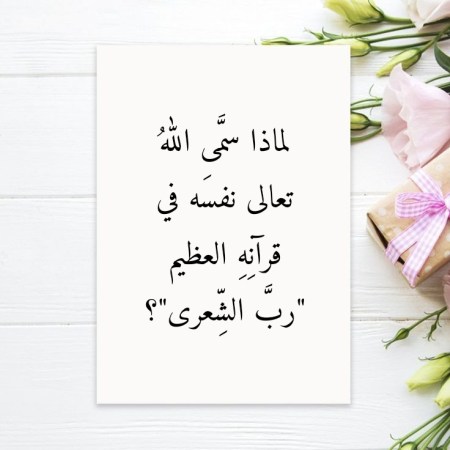 لماذا سمَّى اللهُ
تعالى نفسَه في
قرآنِهِ العظيم
"ربَّ الشِّعرى"؟